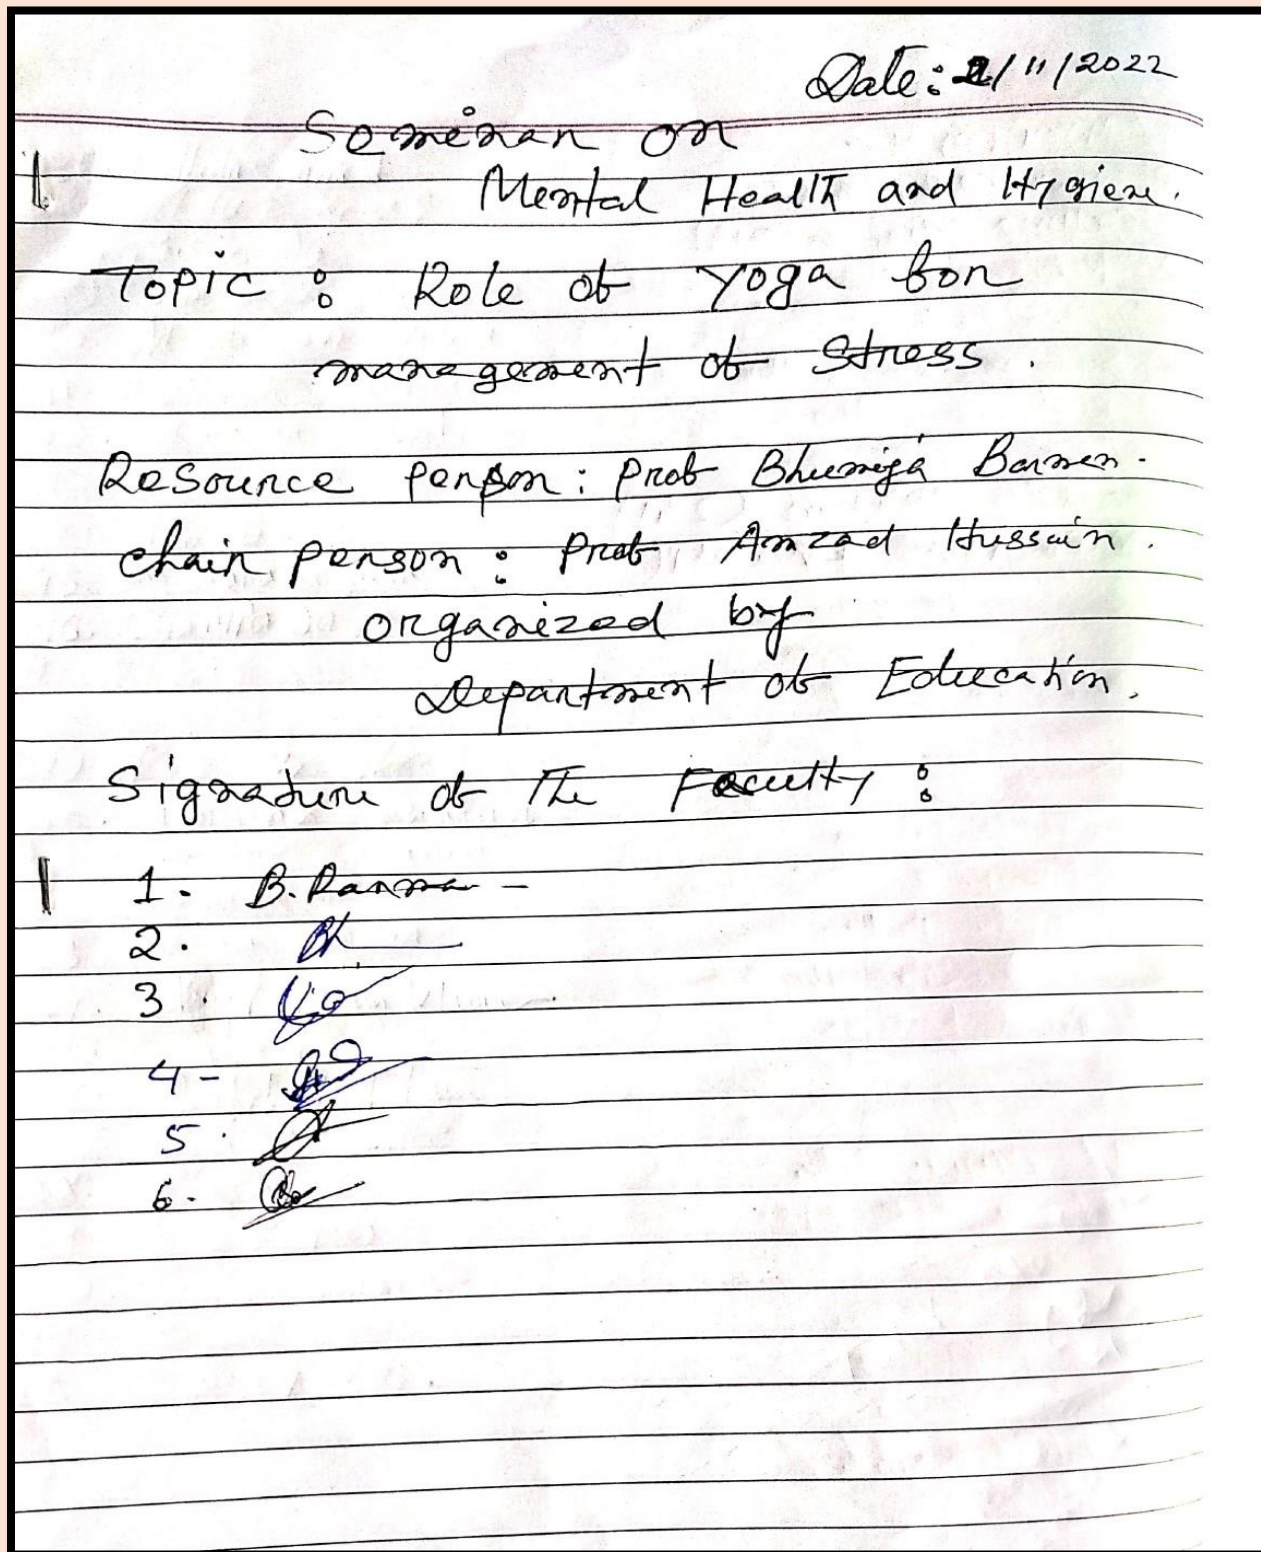 Date: 2/11/2022
Seminar on
Mental Health and Hygiene.
Topic : Role of Yoga for
management of Stress.
Resource person : Prof Bhumija Barman.
Chair person : Prof Amzad Hussain.
organized by
Department of Education.
Signature of The Faculty :
1. B.
2.
3.
4-
5.
6.